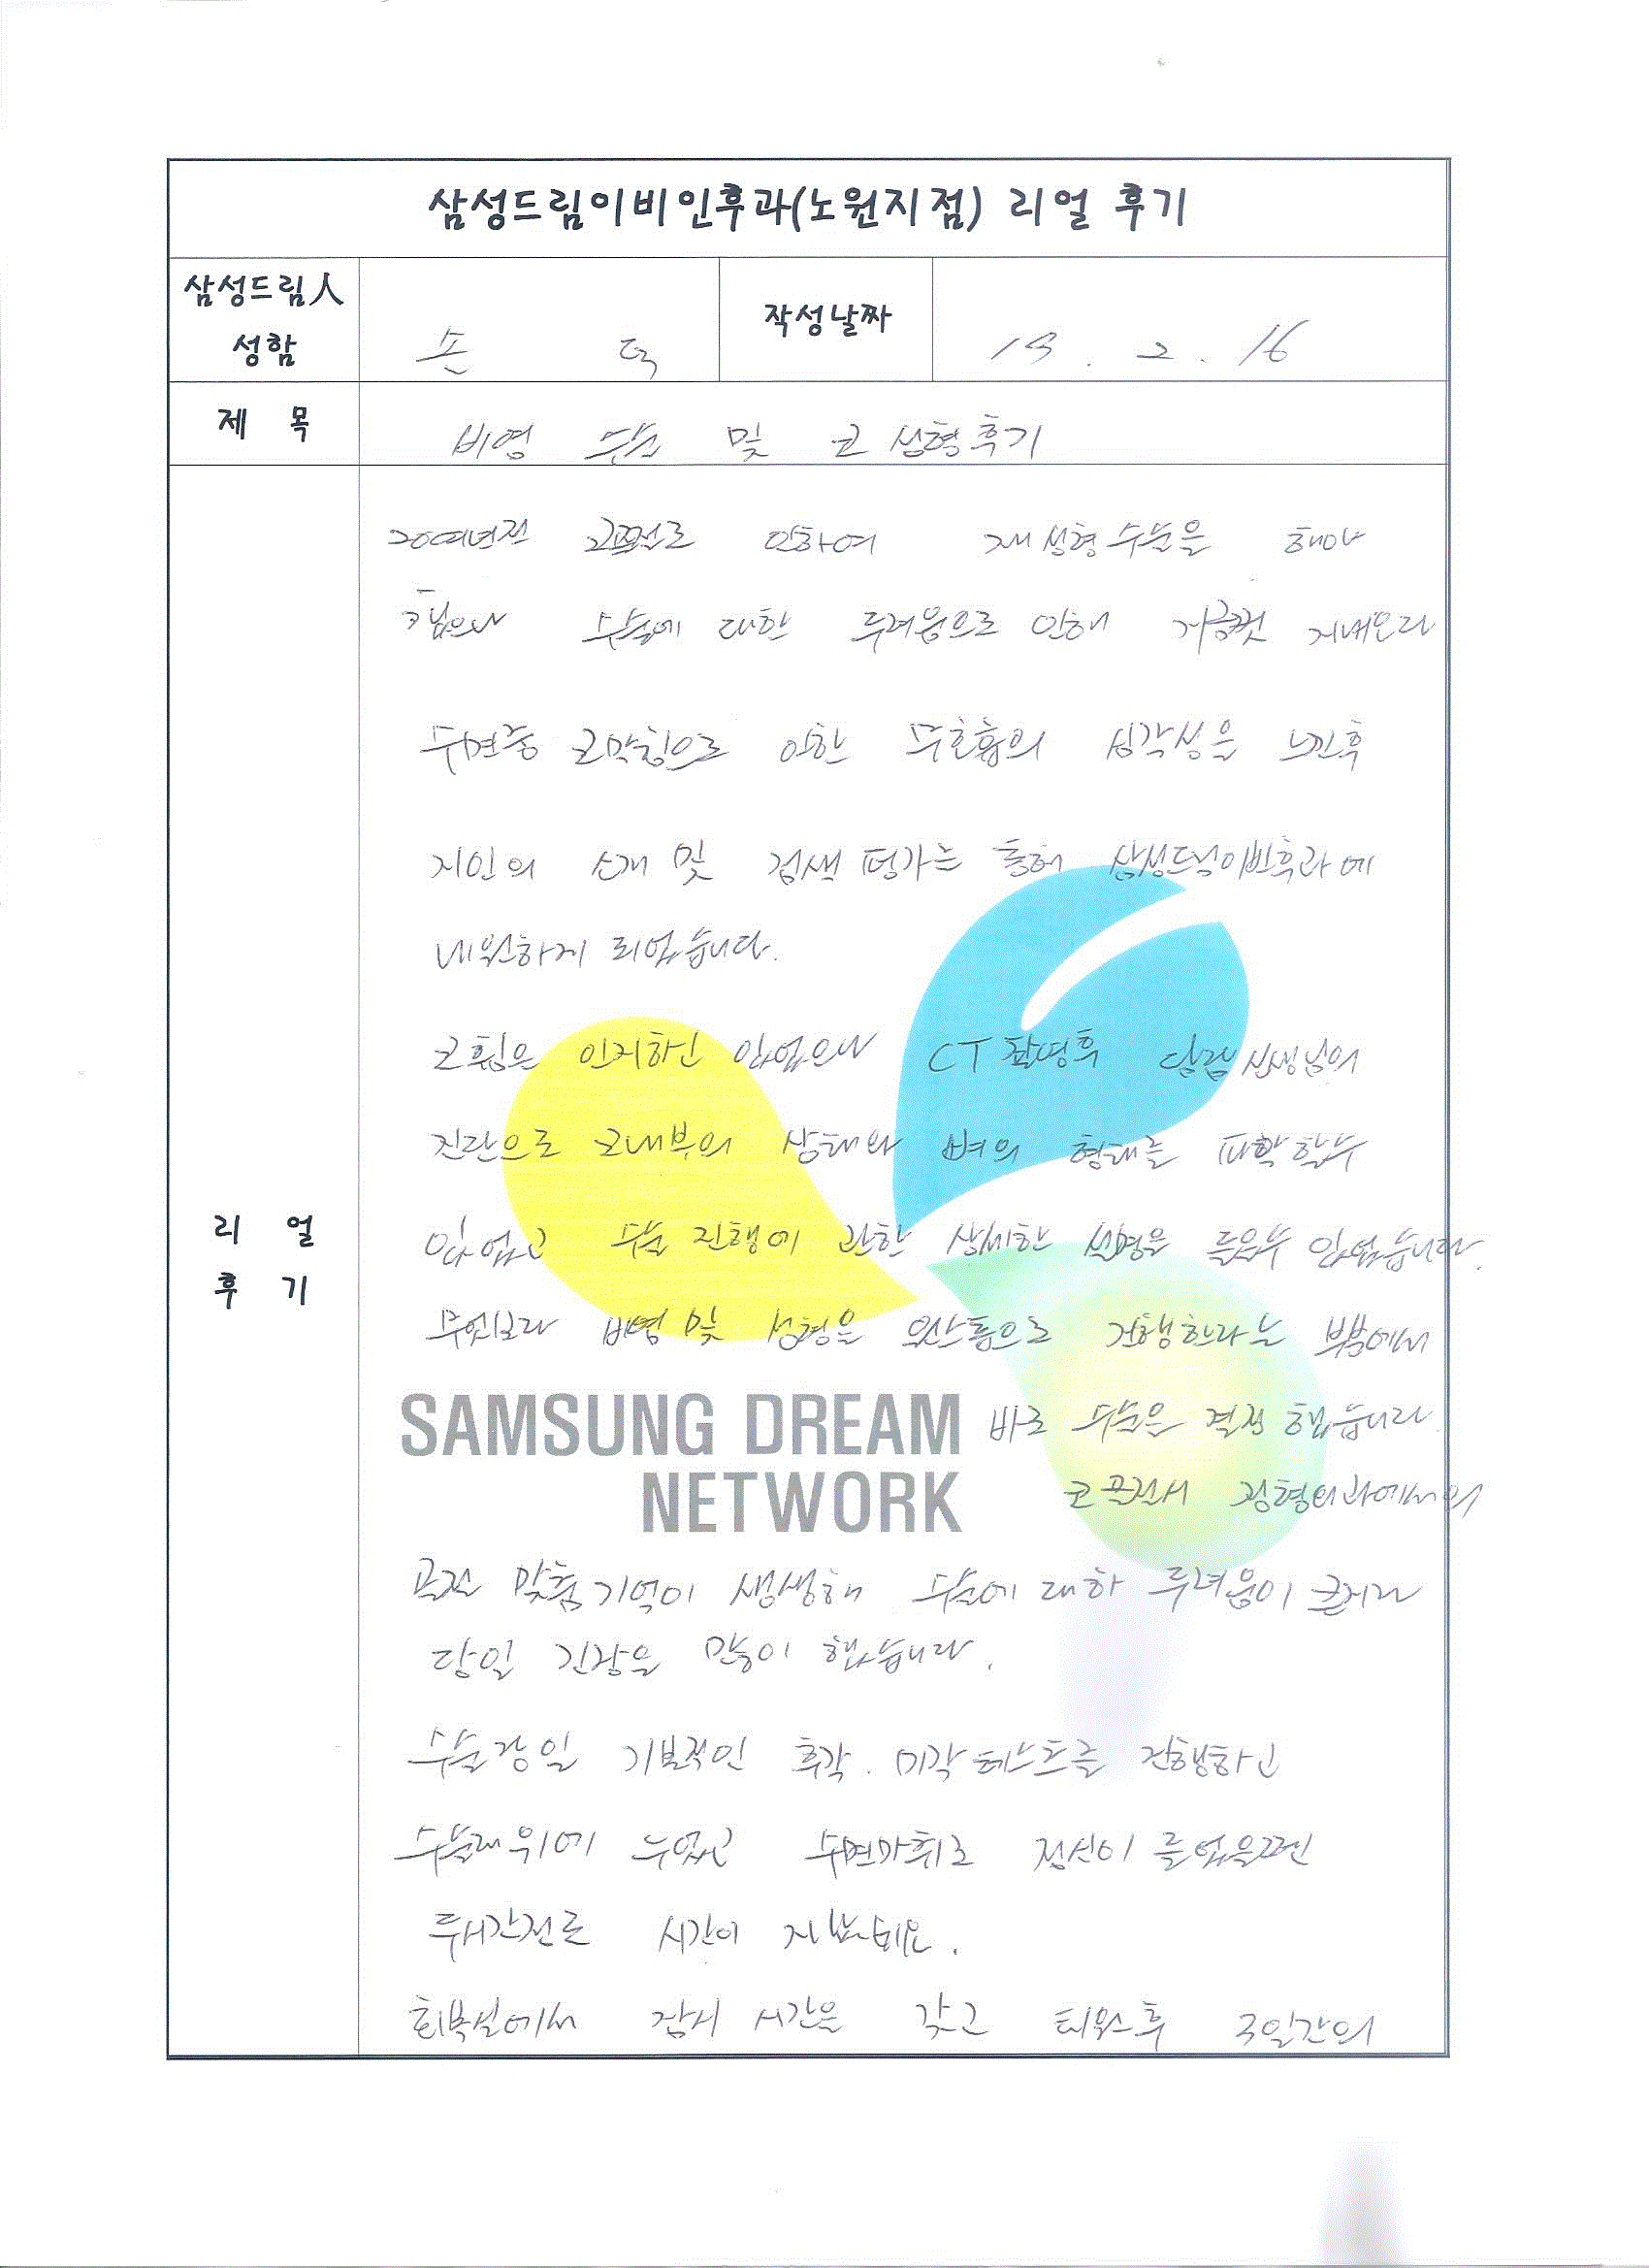 삼성드림이비인후과(노원지점) 리얼 후기
삼성드림人
성함
손 덕
작성날짜
19. 2. 16
제 목
비염 수술 및 코 성형후기
20여년전 인하여 재성형수술을 해야
했으나 수술에 대한 두려움으로 인해 지금껏 지내오다
수면중 코막힘으로 인한 무호흡의 심각성을 느낀후
지인의 소개 및 검색 평가를 통해 삼성드림이빈후과에
내원하게 되었습니다.
코휨은 인지하긴 있었으나 CT촬영후 담당선생님의
진단으로 코내부의 상태와 뼈의 형태를 파악할수
있었고 수술 진행에 관한 상세한 설명을 들을수 있었습니다.
무엇보다 비염 및 성형을 원스톱으로 진행한다는 부분에서
SAMSUNG DREAM
NETWORK
바로 수술을 결정 했습니다.
코골절시 정형외과에서의
골절 맞춤기억이 생생해 수술에 대한 두려움이 큰지라
당일 긴장을 많이 했습니다.
수술당일 기본적인 후각. 미각테스트를 진행하고
수술대위에 누었고 수면마취로 정신이 들었을땐
두시간전로 시간이 지났네요.
회복실에서 잠시 시간을 갖고 퇴원후 3일간의
리 얼
후 기